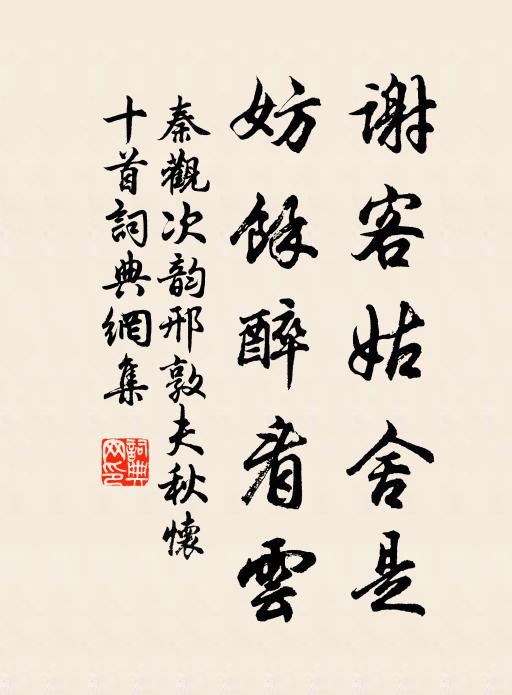 謝客姑舍是
妨餘醉看雲
秦觀次韵邢敦夫秋懷
十首詞典網集
詞典網印